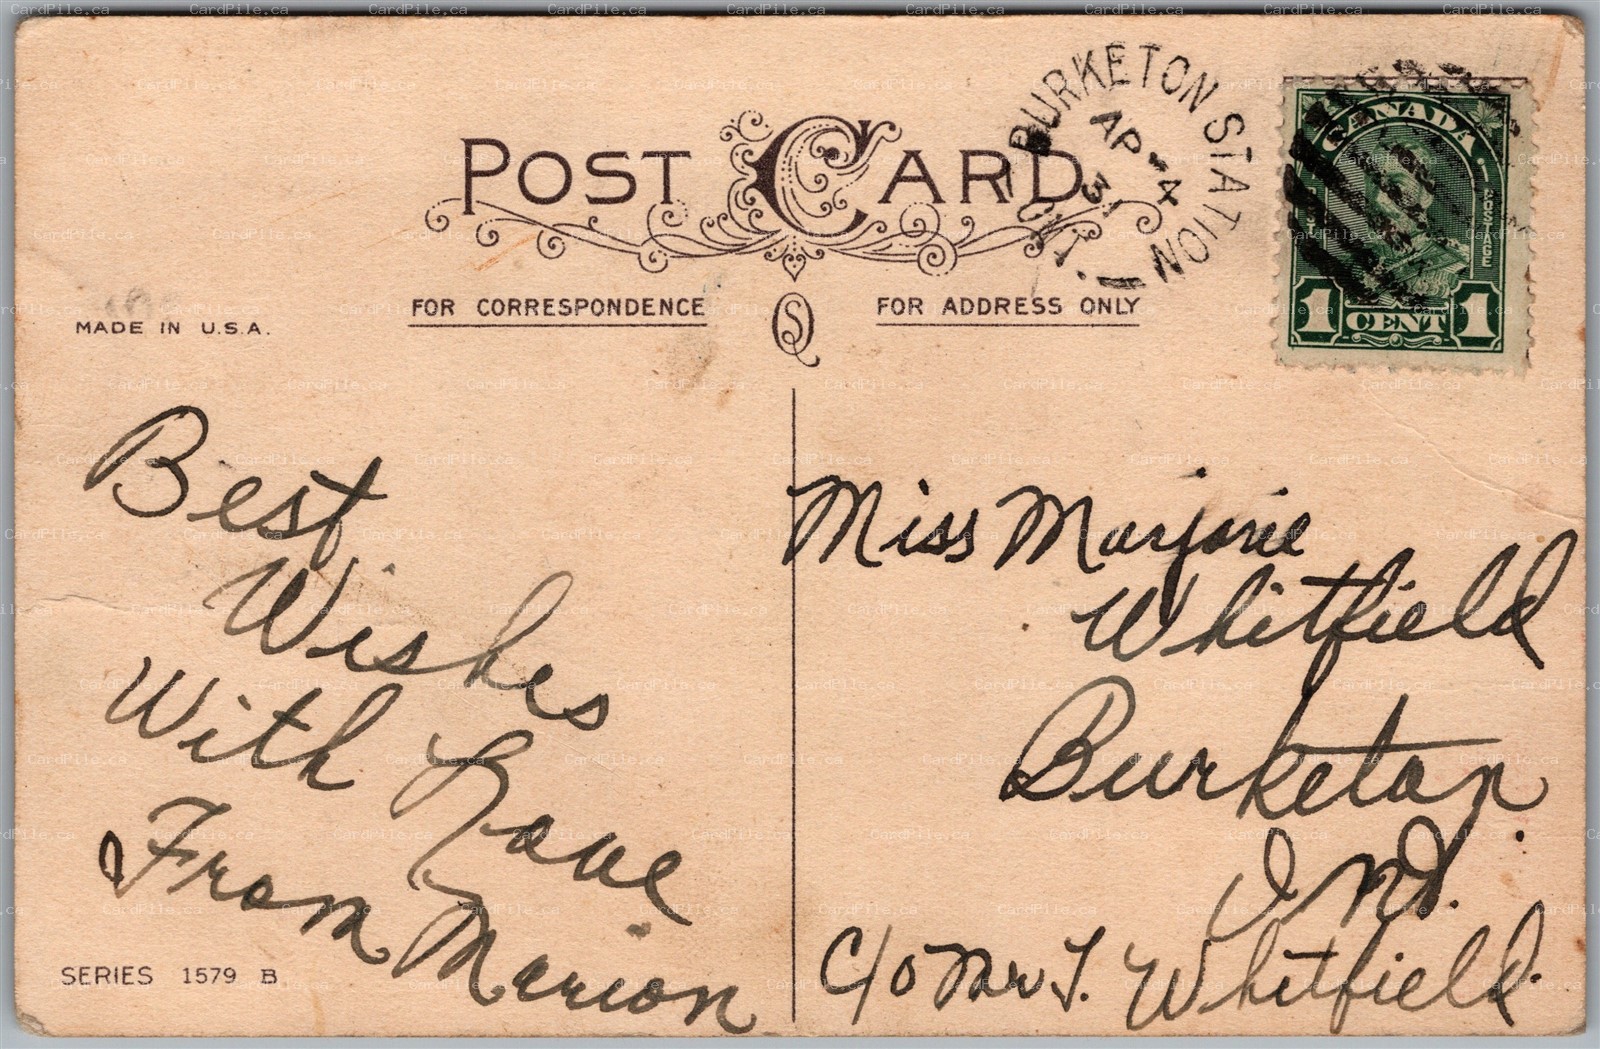 POST CARD
BURKETON STATION
AP - 4
31
ONT.
CANADA
POSTAGE
1 CENT 1
FOR CORRESPONDENCE
FOR ADDRESS ONLY
MADE IN U.S.A.
Best
Wishes
With Love
From Marion
Miss Marjorie
Whitfield
Burketon
Ont.
C/o Mr T. Whitfield.
SERIES 1579 B
CardPile.ca